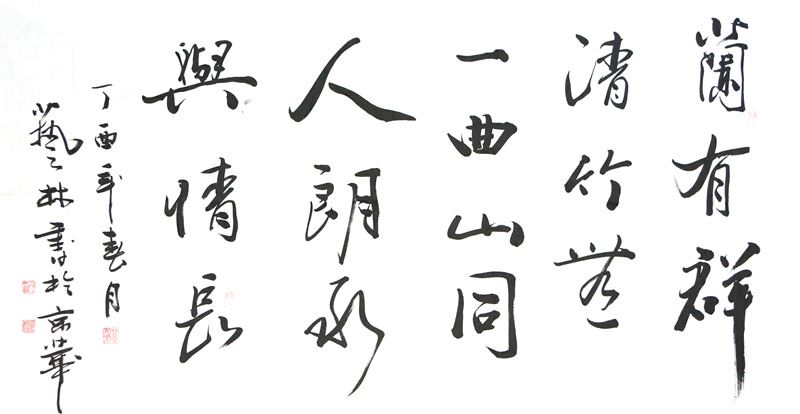 蘭有群
清竹無
一曲山同
人朗永
與情長
丁酉年春月
藝林書於京華